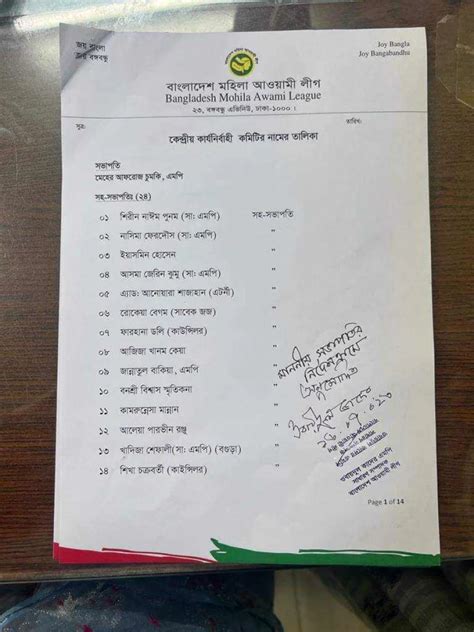 জয় বাংলা
জয় বঙ্গবন্ধু
Joy Bangla
Joy Bangabandhu
বাংলাদেশ মহিলা আওয়ামী লীগ
Bangladesh Mohila Awami League
২৩, বঙ্গবন্ধু এভিনিউ, ঢাকা-১০০০ ।
সূত্র: তারিখ:
কেন্দ্রীয় কার্যনির্বাহী কমিটির নামের তালিকা
সভাপতি
মেহের আফরোজ চুমকি, এমপি
সহ-সভাপতিঃ (২৪)
০১ শিরীন নাঈম পুনম (সা: এমপি) সহ-সভাপতি
০২ নাসিমা ফেরদৌস (সা: এমপি) "
০৩ ইয়াসমিন হোসেন "
০৪ আসমা জেরিন ঝুমু (সা: এমপি) "
০৫ এ্যাড: আনোয়ারা শাজাহান (এটর্নী) "
০৬ রোকেয়া বেগম (সাবেক জজ) "
০৭ ফারহানা ডলি (কাউন্সিলর) "
০৮ আজিজা খানম কেয়া "
০৯ জান্নাতুল বাকিয়া, এমপি "
১০ বনশ্রী বিশ্বাস স্মৃতিকনা "
১১ কামরুন্নেসা মান্নান "
১২ আলেয়া পারভীন রঞ্জু "
১৩ খাদিজা শেফালী(সা: এমপি) (বগুড়া) "
১৪ শিখা চক্রবর্তী (কাইন্সিলর) "
মাননীয় সভাপতির
নির্দেশক্রমে
অনুমোদিত
ওবায়দুল কাদের
ওবায়দুল কাদের এমপি
সাধারণ সম্পাদক
বাংলাদেশ আওয়ামী লীগ
Page 1 of 14